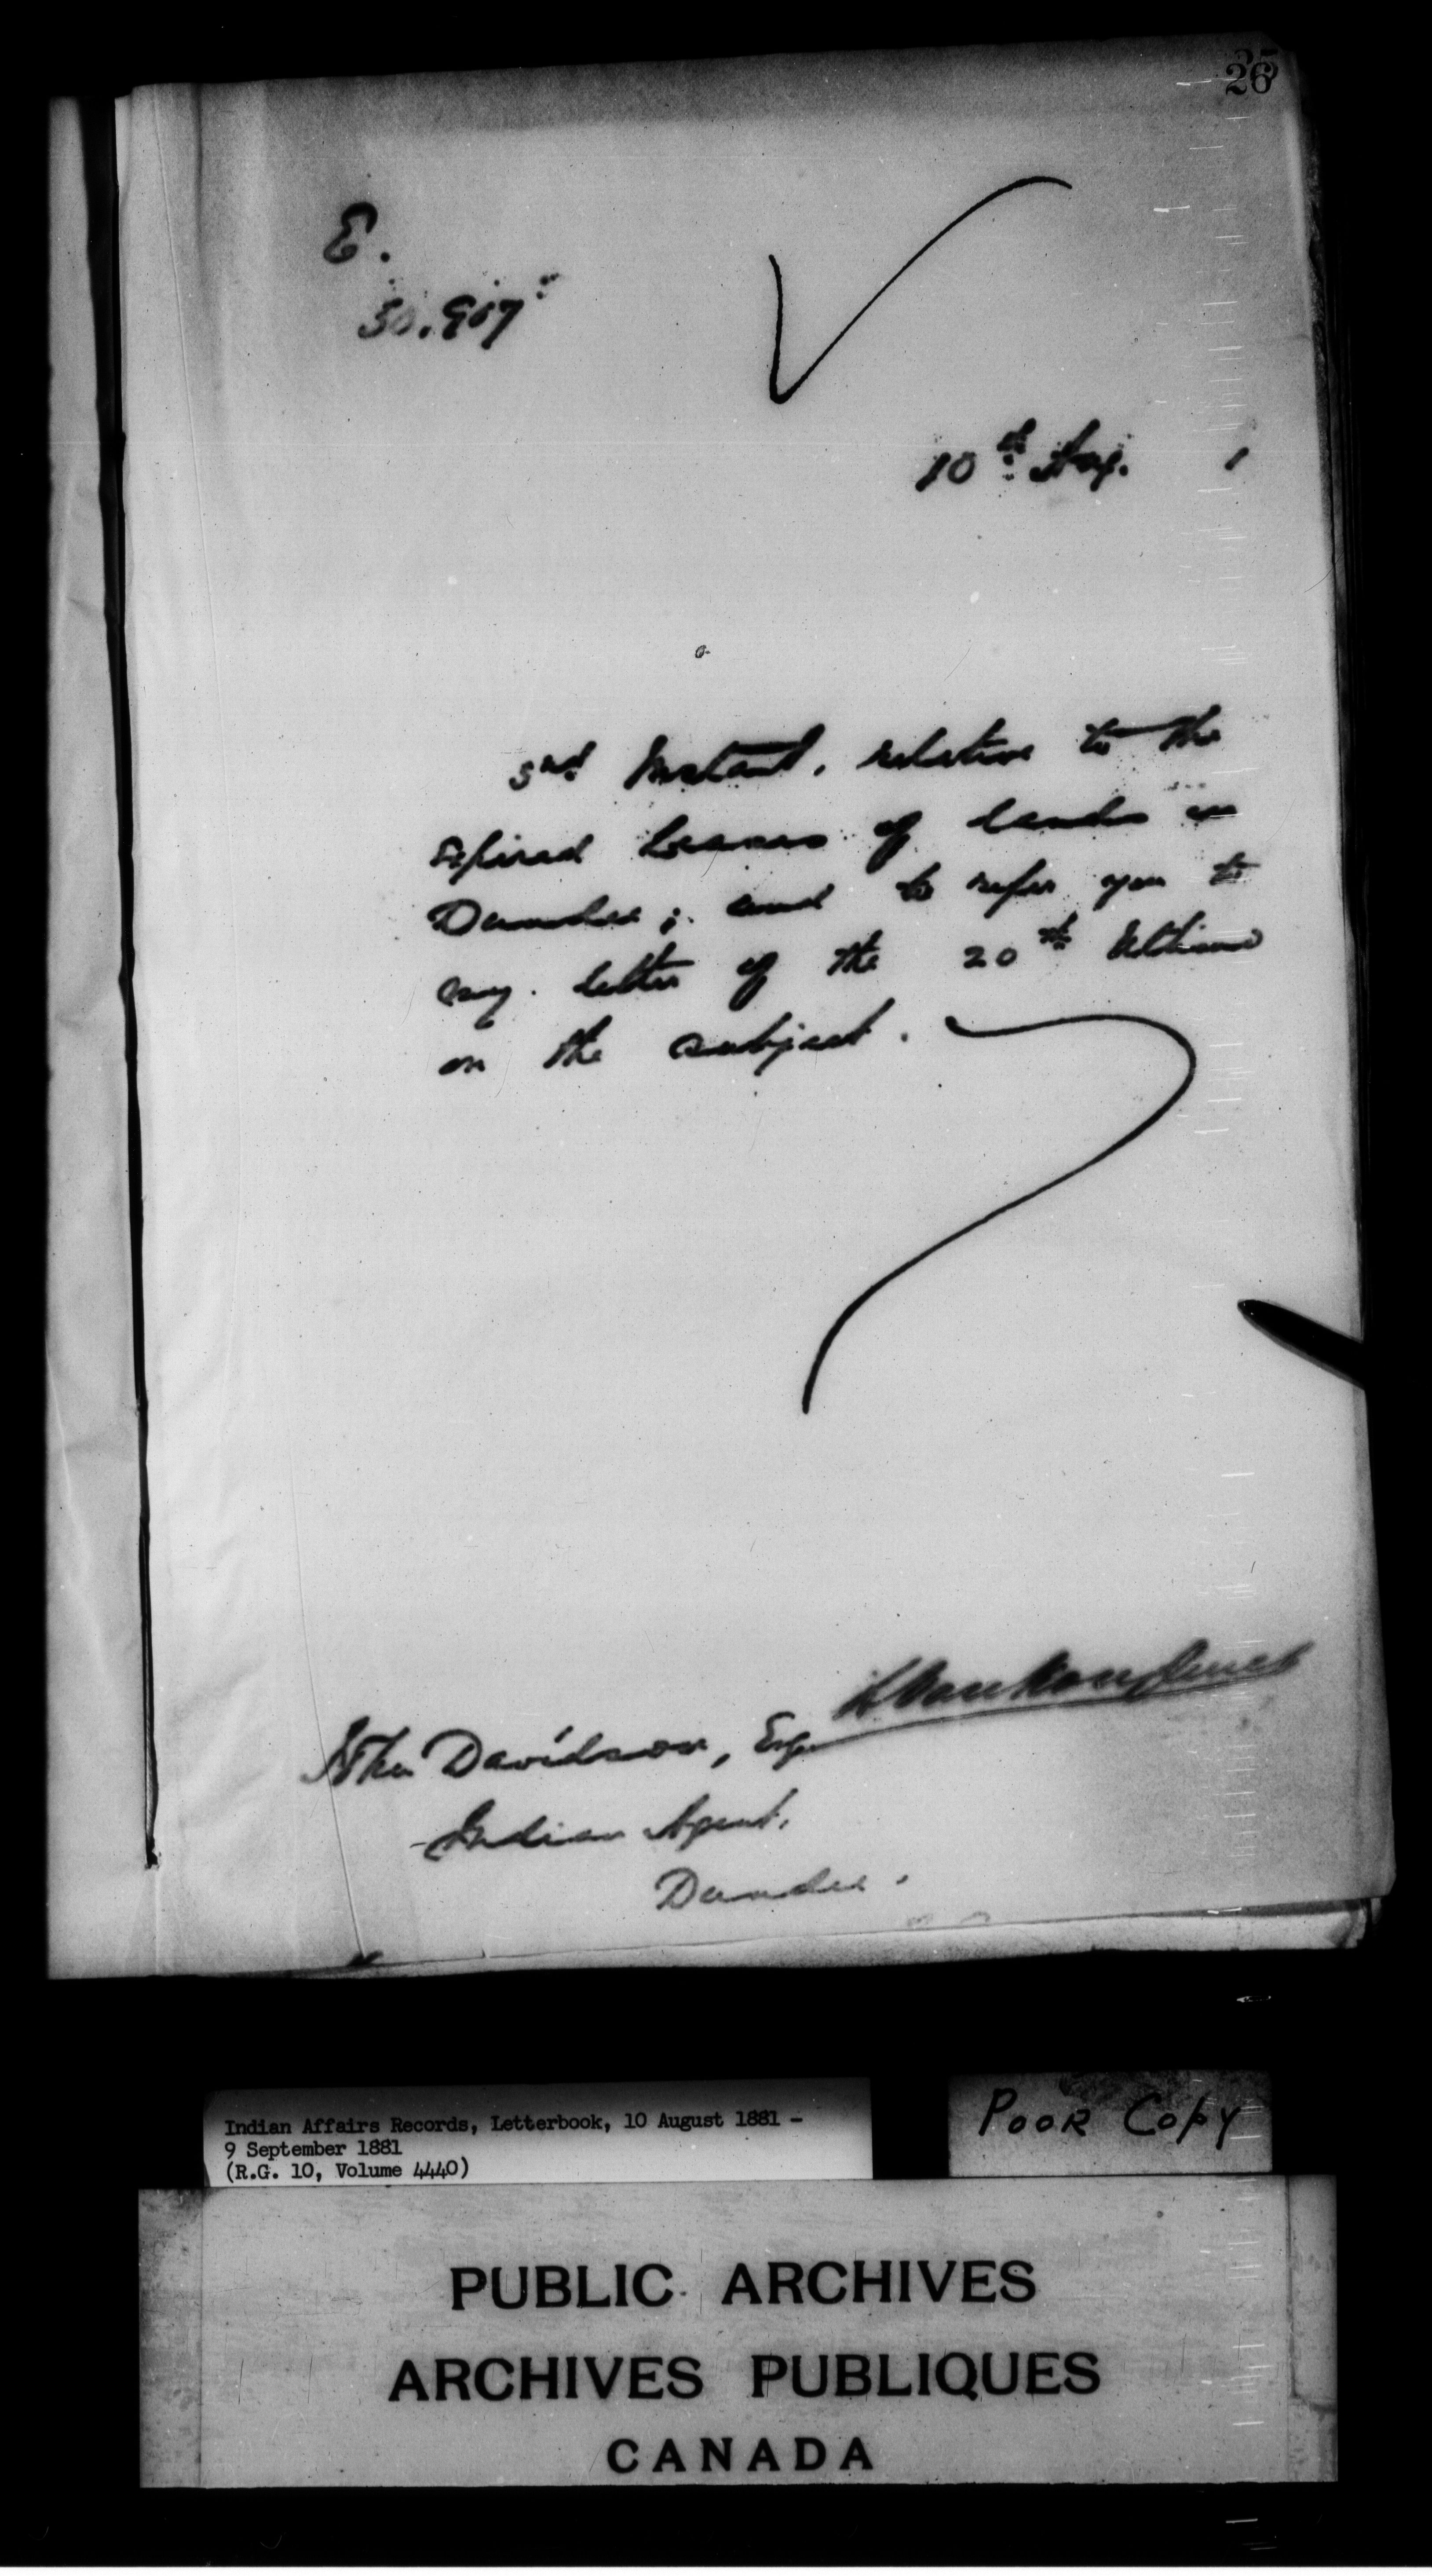 26
E.
30.907
10th Aug. 1
3rd Instant, relative to the
expired Leases of lands in
Dundee; and to refer you to
my letter of the 20th Ultimo
on the subject.
L. Vankoughnet
John Davidson, Esqr
Indian Agent,
Dundee.
Indian Affairs Records, Letterbook, 10 August 1881 -
9 September 1881
(R.G. 10, Volume 4440)
POOR COPY
PUBLIC ARCHIVES
ARCHIVES PUBLIQUES
CANADA